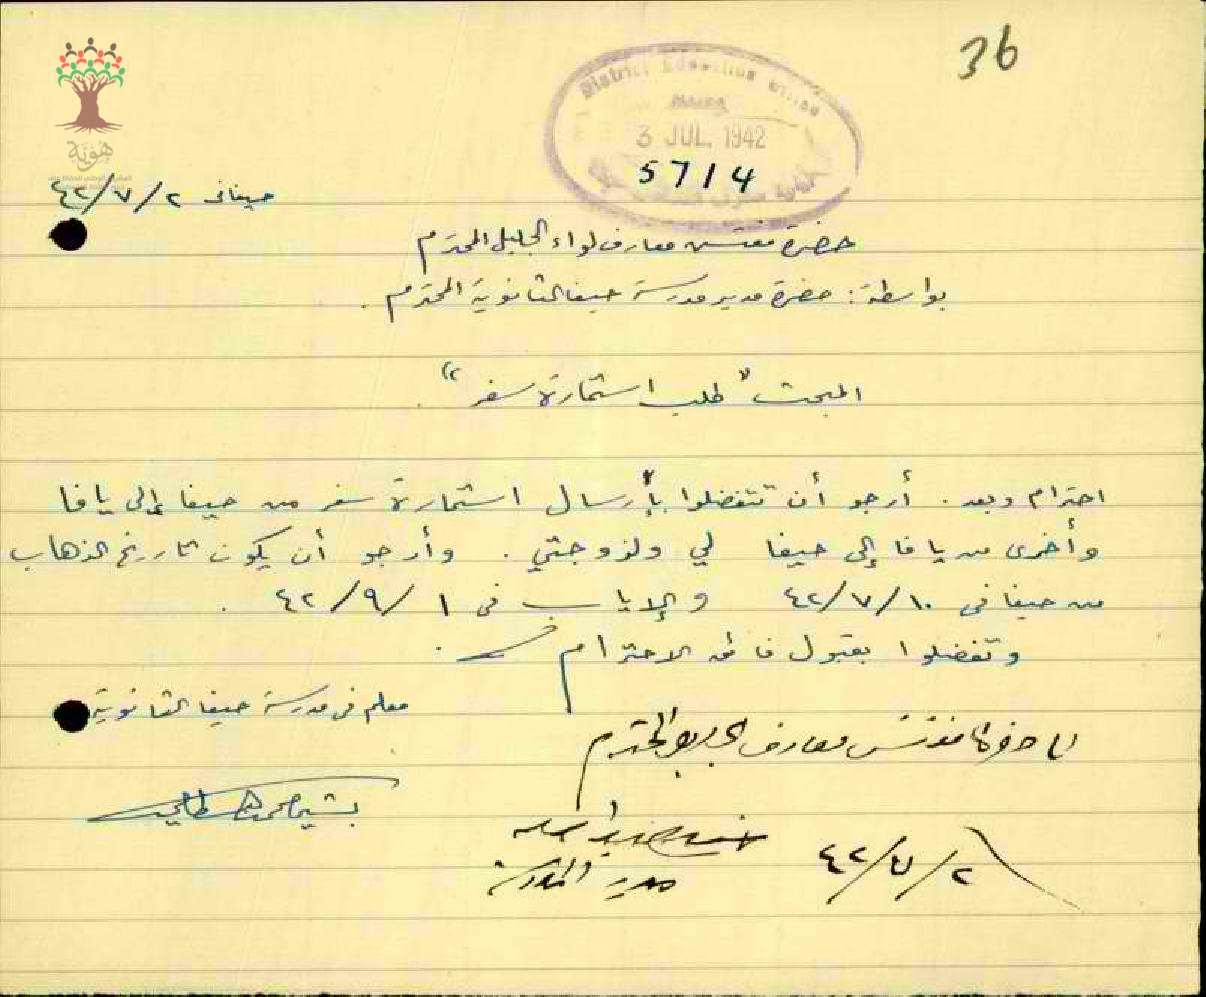 36
District Education Office
Haifa
3 JUL. 1942
5714
هوية
حيفا في ٢/٧/٤٢
حضرة مفتش معارف لواء الجليل المحترم
بواسطة: حضرة مدير مدرسة حيفا الثانوية المحترم.
المبحث "طلب استمارة سفر".
احترام وبعد. أرجو أن تتفضلوا بإرسال استمارة سفر من حيفا إلى يافا
وأخرى من يافا إلى حيفا لي ولزوجتي. وأرجو أن يكون تاريخ الذهاب
من حيفا في ١٠/٧/٤٢ والإياب في ١/٩/٤٢.
وتفضلوا بقبول فائق الاحترام
معلم في مدرسة حيفا الثانوية
مفتش معارف الجليل المحترم
بشير محمد
مدير المدرسة
٢/٧/٤٢